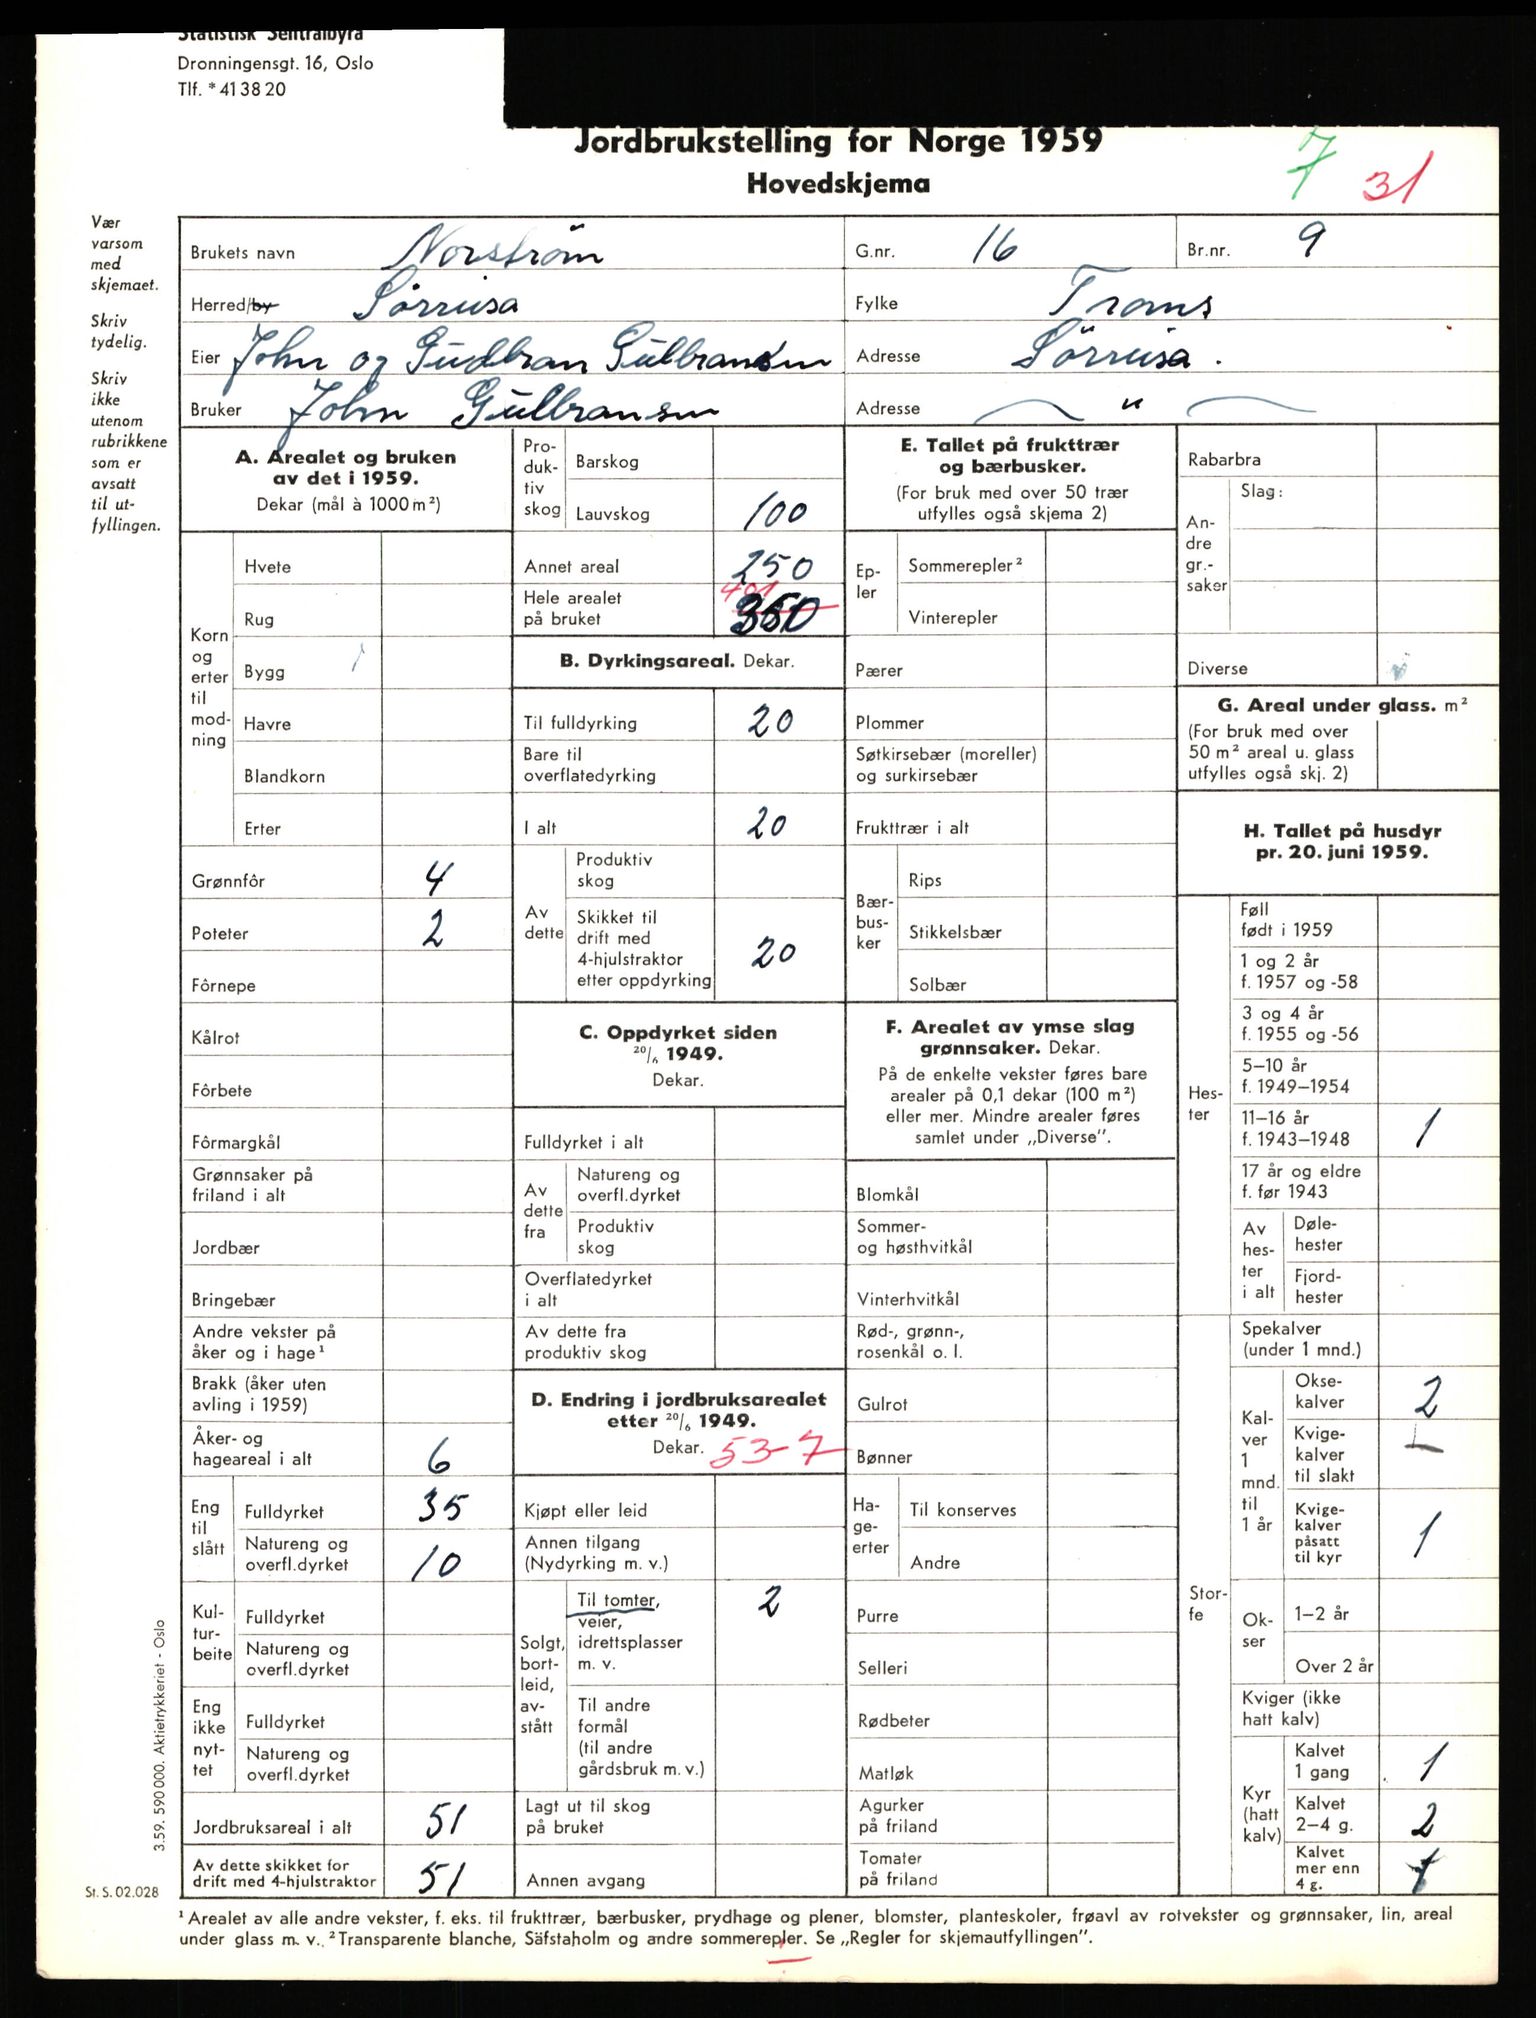 Statistisk Sentralbyrå
Dronningensgt. 16, Oslo
Tlf. * 41 38 20
Jordbrukstelling for Norge 1959
Hovedskjema
7 31
Vær
varsom
med
skjemaet.
Skriv
tydelig.
Skriv
ikke
utenom
rubrikkene
som er
avsatt
til ut-
fyllingen.
Brukets navn Norström
G.nr. 16 Br.nr. 9
Herred/by Sörreisa
Fylke Troms
Eier John og Gudbran Gulbransen
Adresse Sörreisa.
Bruker John Gulbransen
Adresse — " —
A. Arealet og bruken
av det i 1959.
Dekar (mål à 1000 m²)
Korn
og
erter
til
mod-
ning
Hvete
Rug
Bygg
Havre
Blandkorn
Erter
Grønnfôr 4
Poteter 2
Fôrnepe
Kålrot
Fôrbete
Fôrmargkål
Grønnsaker på
friland i alt
Jordbær
Bringebær
Andre vekster på
åker og i hage¹
Brakk (åker uten
avling i 1959)
Åker- og
hageareal i alt 6
Eng
til
slått
Fulldyrket 35
Natureng og
overfl.dyrket 10
Kul-
tur-
beite
Fulldyrket
Natureng og
overfl.dyrket
Eng
ikke
nyt-
tet
Fulldyrket
Natureng og
overfl.dyrket
Jordbruksareal i alt 51
Av dette skikket for
drift med 4-hjulstraktor 51
Pro-
duk-
tiv
skog
Barskog
Lauvskog 100
Annet areal 250
Hele arealet
på bruket 401 350
B. Dyrkingsareal. Dekar.
Til fulldyrking 20
Bare til
overflatedyrking
I alt 20
Av
dette
Produktiv
skog
Skikket til
drift med
4-hjulstraktor
etter oppdyrking 20
C. Oppdyrket siden
20/6 1949.
Dekar.
Fulldyrket i alt
Av
dette
fra
Natureng og
overfl.dyrket
Produktiv
skog
Overflatedyrket
i alt
Av dette fra
produktiv skog
D. Endring i jordbruksarealet
etter 20/6 1949.
Dekar. 53-7
Kjøpt eller leid
Annen tilgang
(Nydyrking m. v.)
Solgt,
bort-
leid,
av-
stått
Til tomter,
veier,
idrettsplasser
m. v. 2
Til andre
formål
(til andre
gårdsbruk m. v.)
Lagt ut til skog
på bruket
Annen avgang
E. Tallet på frukttrær
og bærbusker.
(For bruk med over 50 trær
utfylles også skjema 2)
Ep-
ler
Sommerepler²
Vinterepler
Pærer
Plommer
Søtkirsebær (moreller)
og surkirsebær
Frukttrær i alt
Bær-
bus-
ker
Rips
Stikkelsbær
Solbær
F. Arealet av ymse slag
grønnsaker. Dekar.
På de enkelte vekster føres bare
arealer på 0,1 dekar (100 m²)
eller mer. Mindre arealer føres
samlet under „Diverse".
Blomkål
Sommer-
og høsthvitkål
Vinterhvitkål
Rød-, grønn-,
rosenkål o. l.
Gulrot
Bønner
Ha-
ge-
erter
Til konserves
Andre
Purre
Selleri
Rødbeter
Matløk
Agurker
på friland
Tomater
på friland
Rabarbra
An-
dre
gr.-
saker
Slag:
Diverse
G. Areal under glass. m²
(For bruk med over
50 m² areal u. glass
utfylles også skj. 2)
H. Tallet på husdyr
pr. 20. juni 1959.
Hes-
ter
Føll
født i 1959
1 og 2 år
f. 1957 og -58
3 og 4 år
f. 1955 og -56
5–10 år
f. 1949–1954
11–16 år
f. 1943–1948 1
17 år og eldre
f. før 1943
Av
hes-
ter
i alt
Døle-
hester
Fjord-
hester
Stor-
fe
Spekalver
(under 1 mnd.)
Kal-
ver
1
mnd.
til
1 år
Okse-
kalver 2
Kvige-
kalver
til slakt
Kvige-
kalver
påsatt
til kyr 1
Ok-
ser
1–2 år
Over 2 år
Kviger (ikke
hatt kalv)
Kyr
(hatt
kalv)
Kalvet
1 gang 1
Kalvet
2–4 g. 2
Kalvet
mer enn
4 g.
3.59. 590 000. Aktietrykkeriet - Oslo
St. S. 02.028
¹ Arealet av alle andre vekster, f. eks. til frukttrær, bærbusker, prydhage og plener, blomster, planteskoler, frøavl av rotvekster og grønnsaker, lin, areal
under glass m. v. ² Transparente blanche, Säfstaholm og andre sommerepler. Se „Regler for skjemautfyllingen".